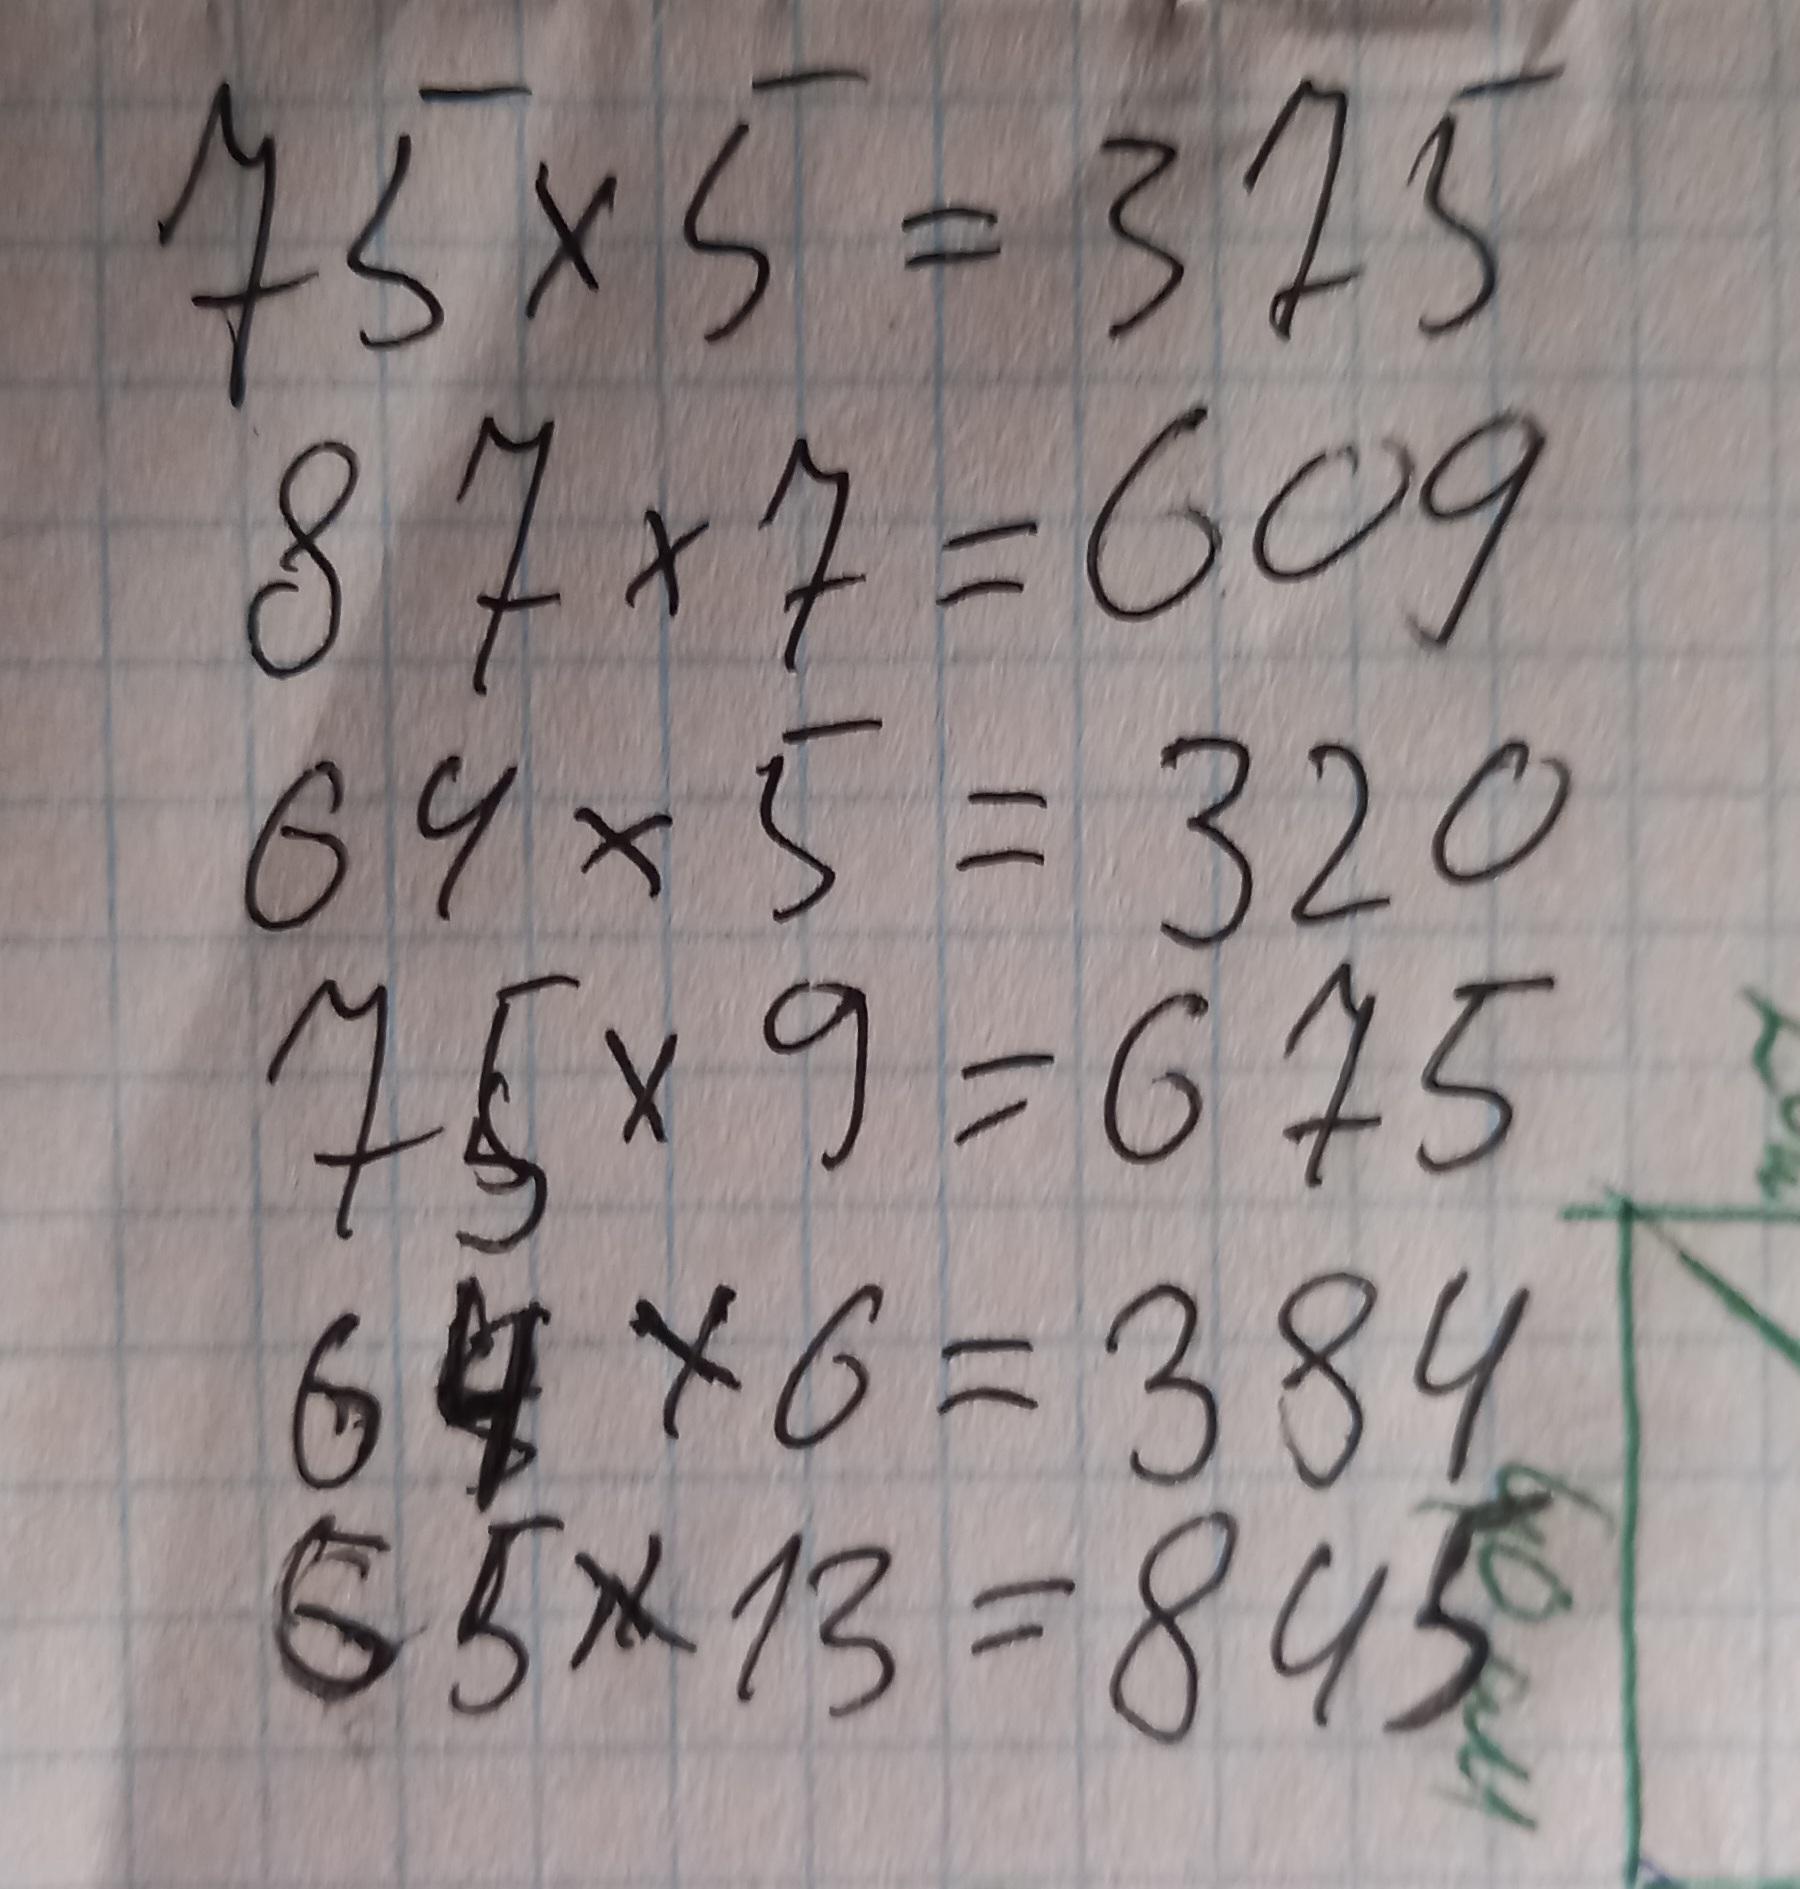 75 × 5 = 375
87 × 7 = 609
64 × 5 = 320
75 × 9 = 675
64 × 6 = 384
65 × 13 = 845